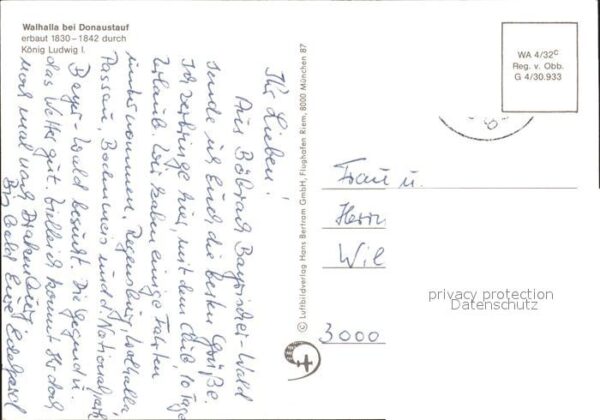 Walhalla bei Donaustauf
erbaut 1830–1842 durch
König Ludwig I.
Ihr Lieben!
Aus Böbrach Bayrischer-Wald
sende ich Euch die besten Grüße.
Ich verbringe hier, mit dem Club, 10 Tage
Urlaub. Wir haben einige Fahrten
unternommen, Regensburg, Walhalla,
Passau, Bodenmais und Nationalpark
Bayr-Wald besucht. Die Gegend u.
das Wetter gut. Vielleicht kommt Ihr doch
noch mal nach Drakenburg.
Bis bald Eure Edelgard
© Luftbildverlag Hans Bertram GmbH, Flughafen Riem, 8000 München 87
WA 4/32c
Reg. v. Obb.
G 4/30.933
Frau u.
Herrn
Wil
3000
privacy protection
Datenschutz